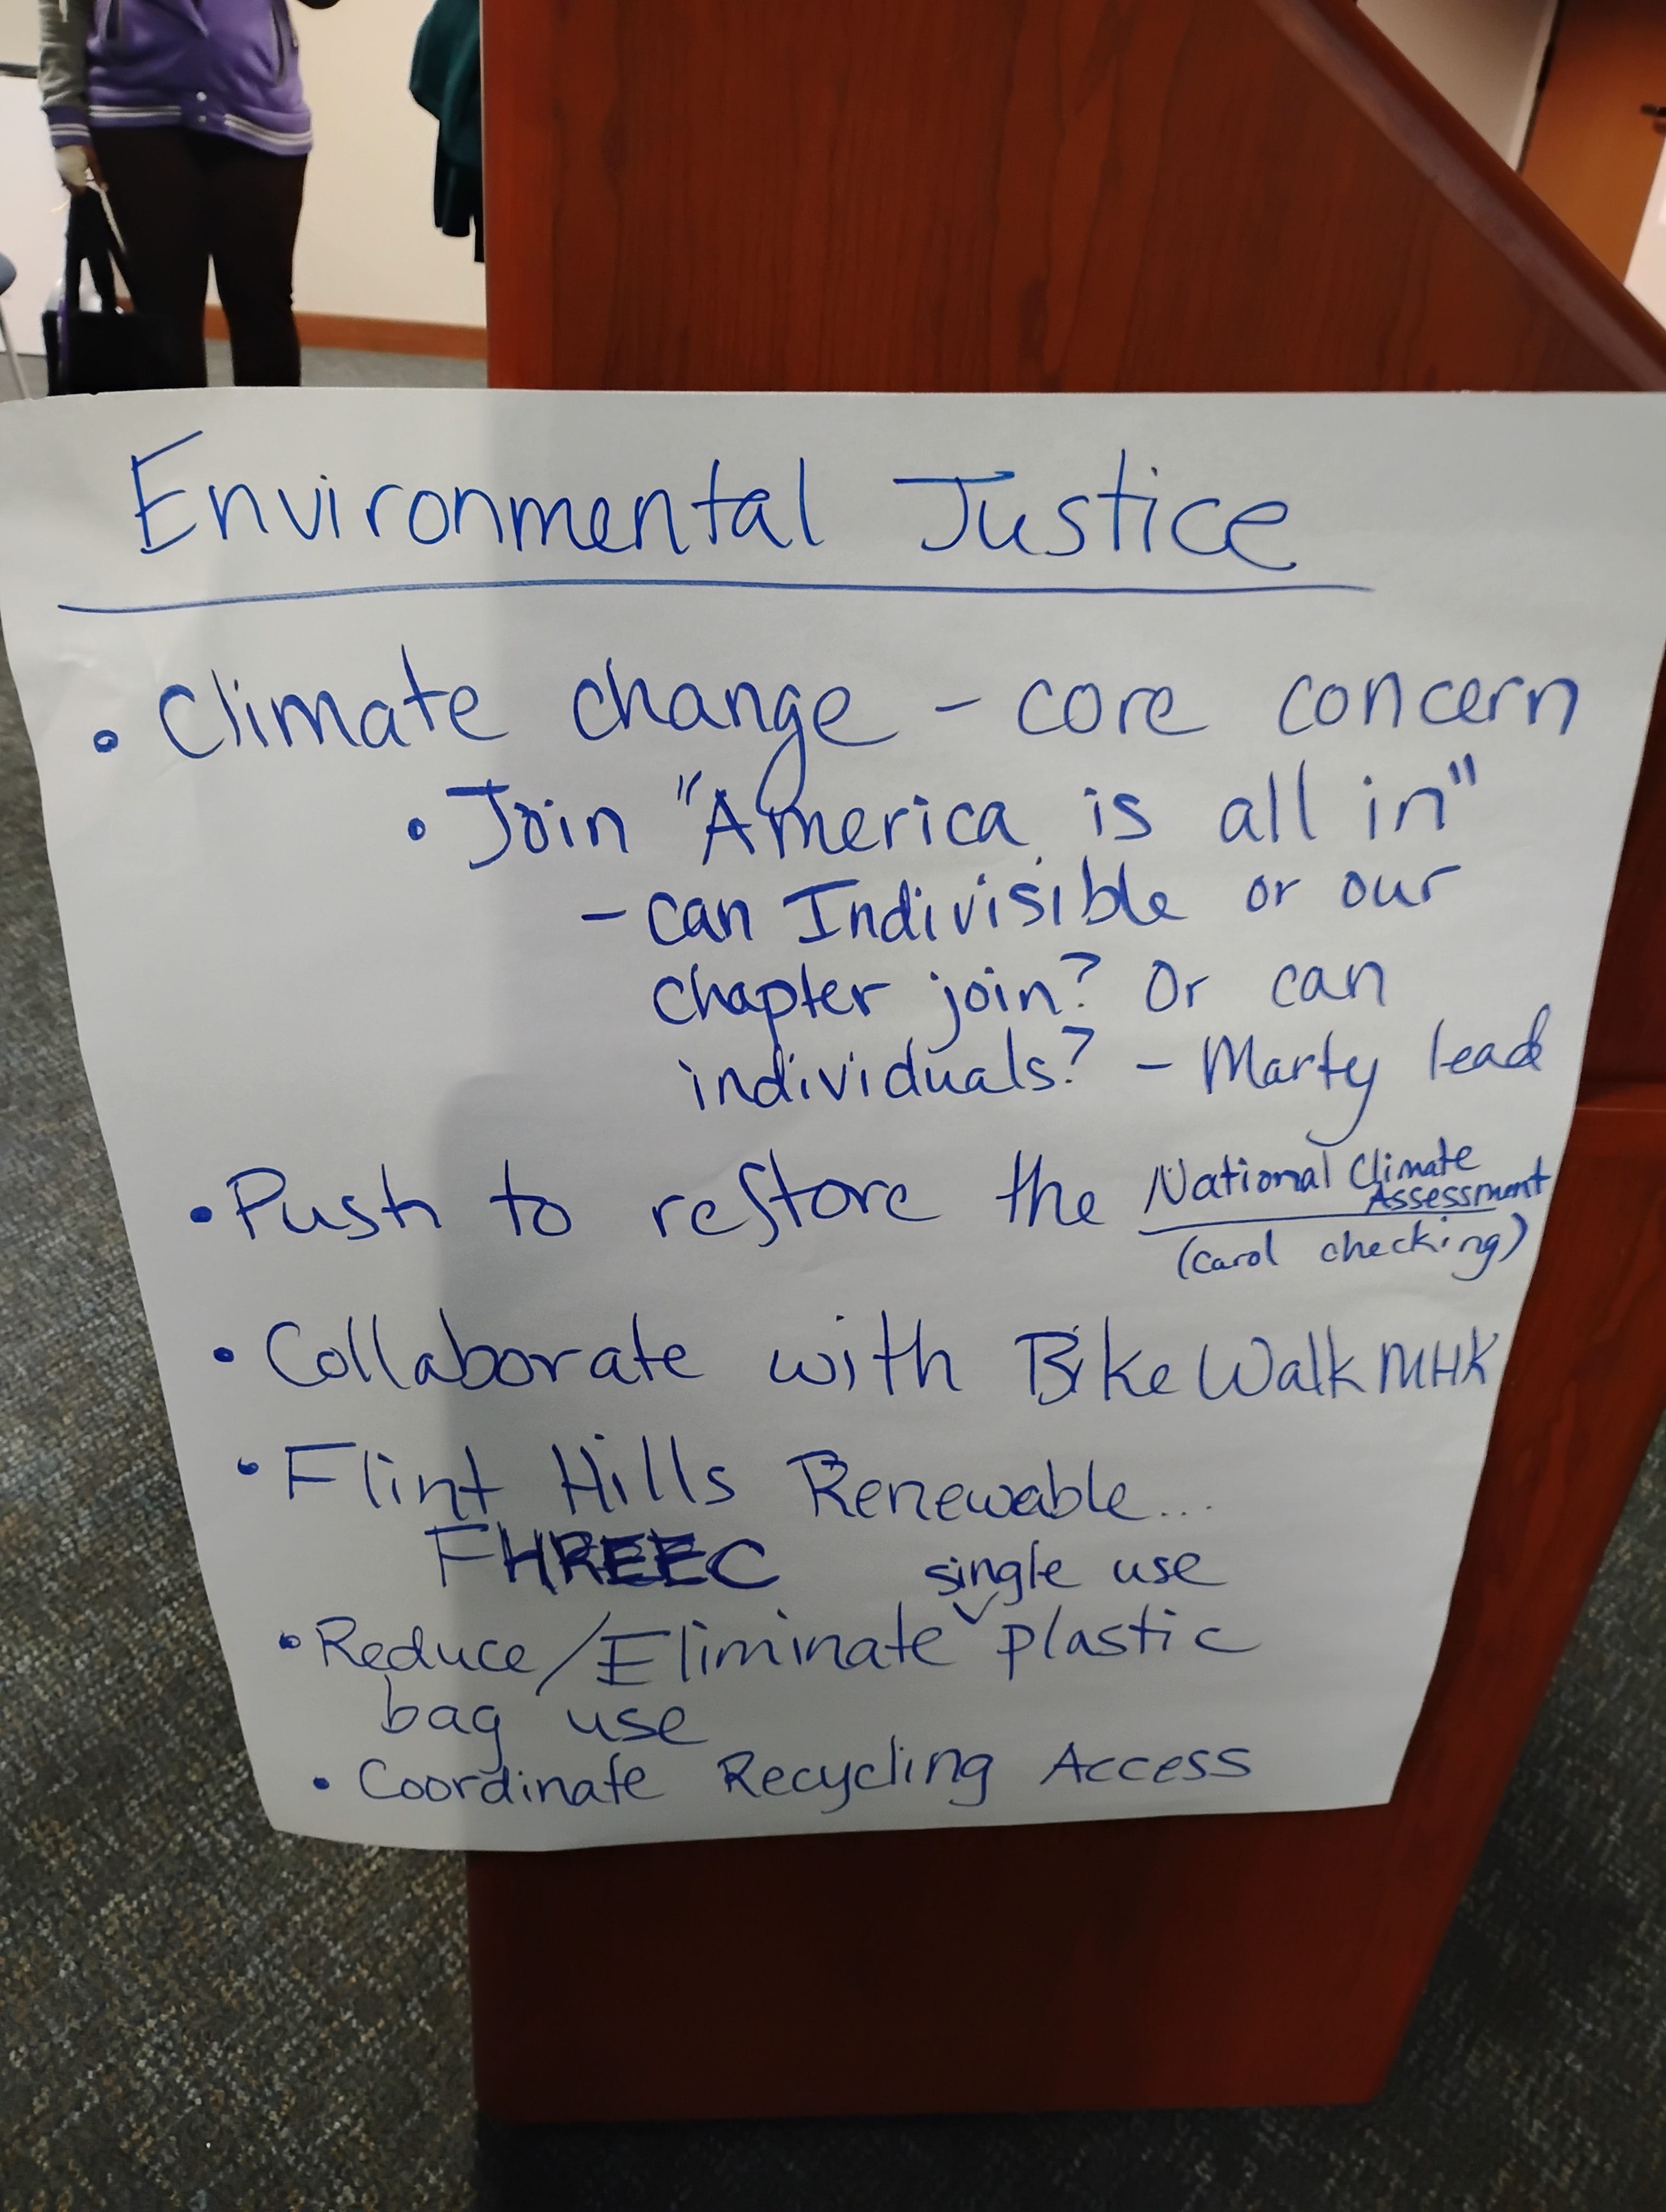 Environmental Justice
• Climate change - core concern
• Join "America is all in"
- can Indivisible or our
chapter join? Or can
individuals? - Marty lead
• Push to restore the National Climate
Assessment
(Carol checking)
• Collaborate with Bike Walk MHK
• Flint Hills Renewable...
FHREEC
single use
• Reduce/Eliminate ˅ plastic
bag use
• Coordinate Recycling Access